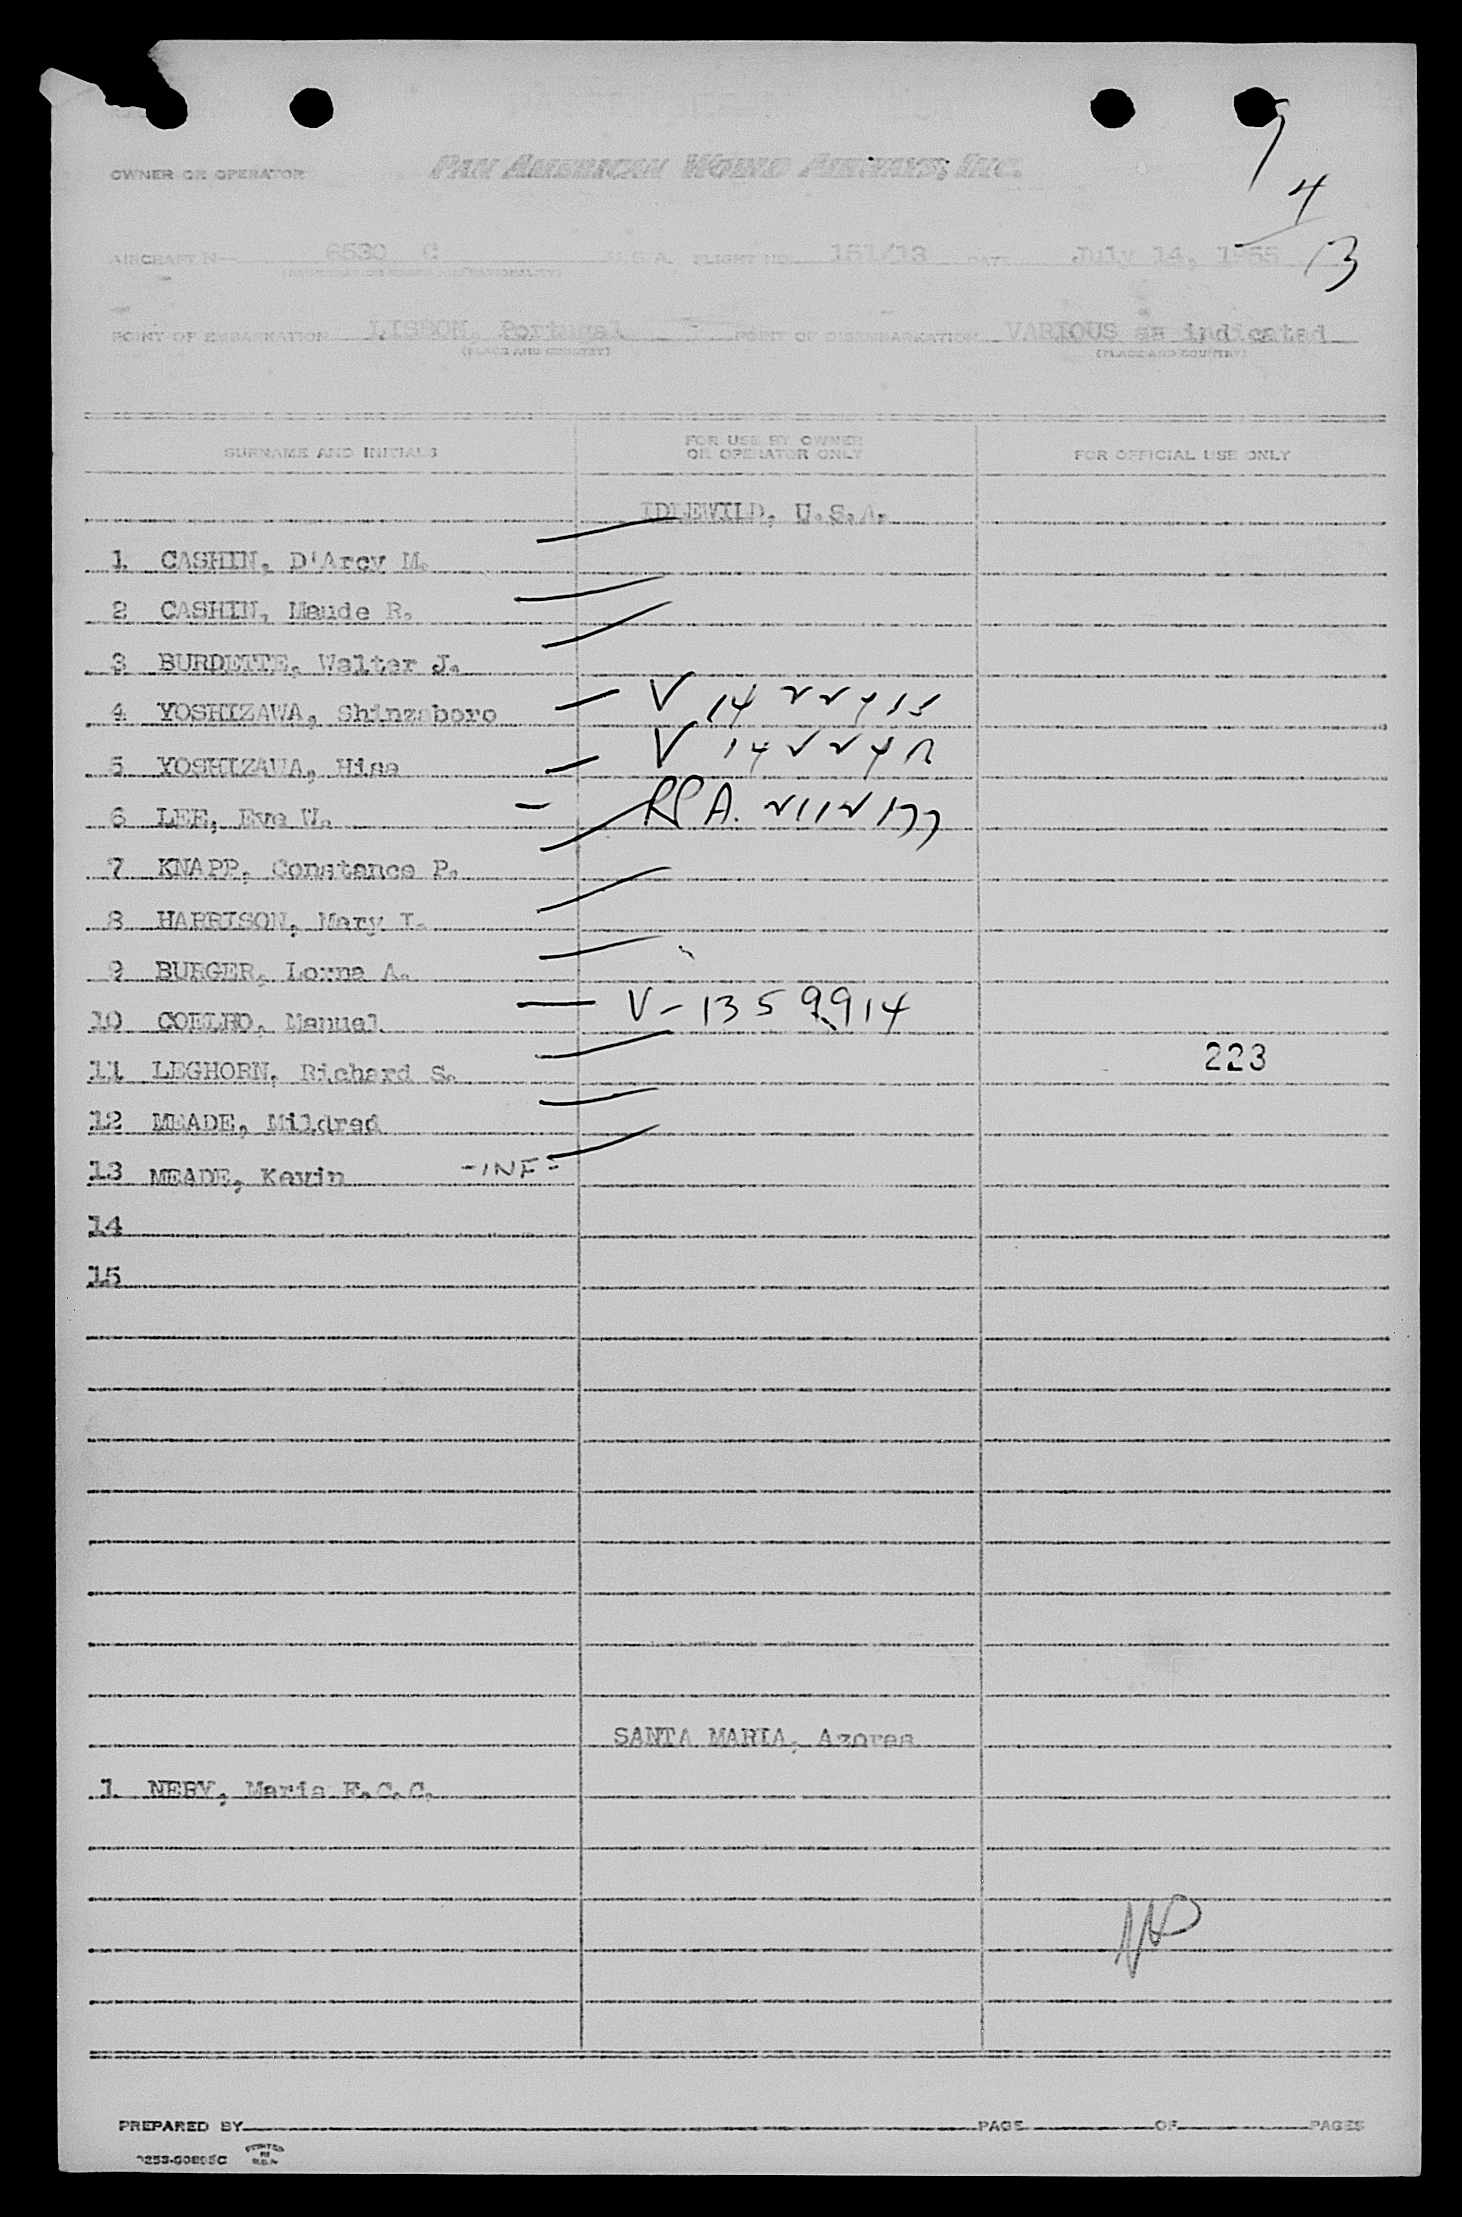 OWNER OR OPERATOR PAN AMERICAN WORLD AIRWAYS, INC.
4
13
AIRCRAFT N— 6530 C U.S.A. FLIGHT NO. 151/13 DATE July 14, 1955
POINT OF EMBARKATION LISBON, Portugal - POINT OF DISEMBARKATION VARIOUS as indicated
(PLACE AND COUNTRY) (PLACE AND COUNTRY)
SURNAME AND INITIALS FOR USE BY OWNER OR OPERATOR ONLY FOR OFFICIAL USE ONLY
IDLEWILD, U.S.A.
1 CASHIN, D'Arcy M.
2 CASHIN, Maude R.
3 BURDETTE, Walter J.
4 YOSHIZAWA, Shinzaboro V
5 YOSHIZAWA, Hisa V
6 LEE, Eva W.
7 KNAPP, Constance P.
8 HARRISON, Mary I.
9 BURGER, Lorna A.
10 COELHO, Manual V-1359914
11 LEGHORN, Richard S. 223
12 MEADE, Mildred
13 MEADE, Kevin -INF-
14
15
SANTA MARIA, Azores
1 NERY, Maria F.C.C.
PREPARED BY PAGE OF PAGES
PRINTED IN U.S.A.